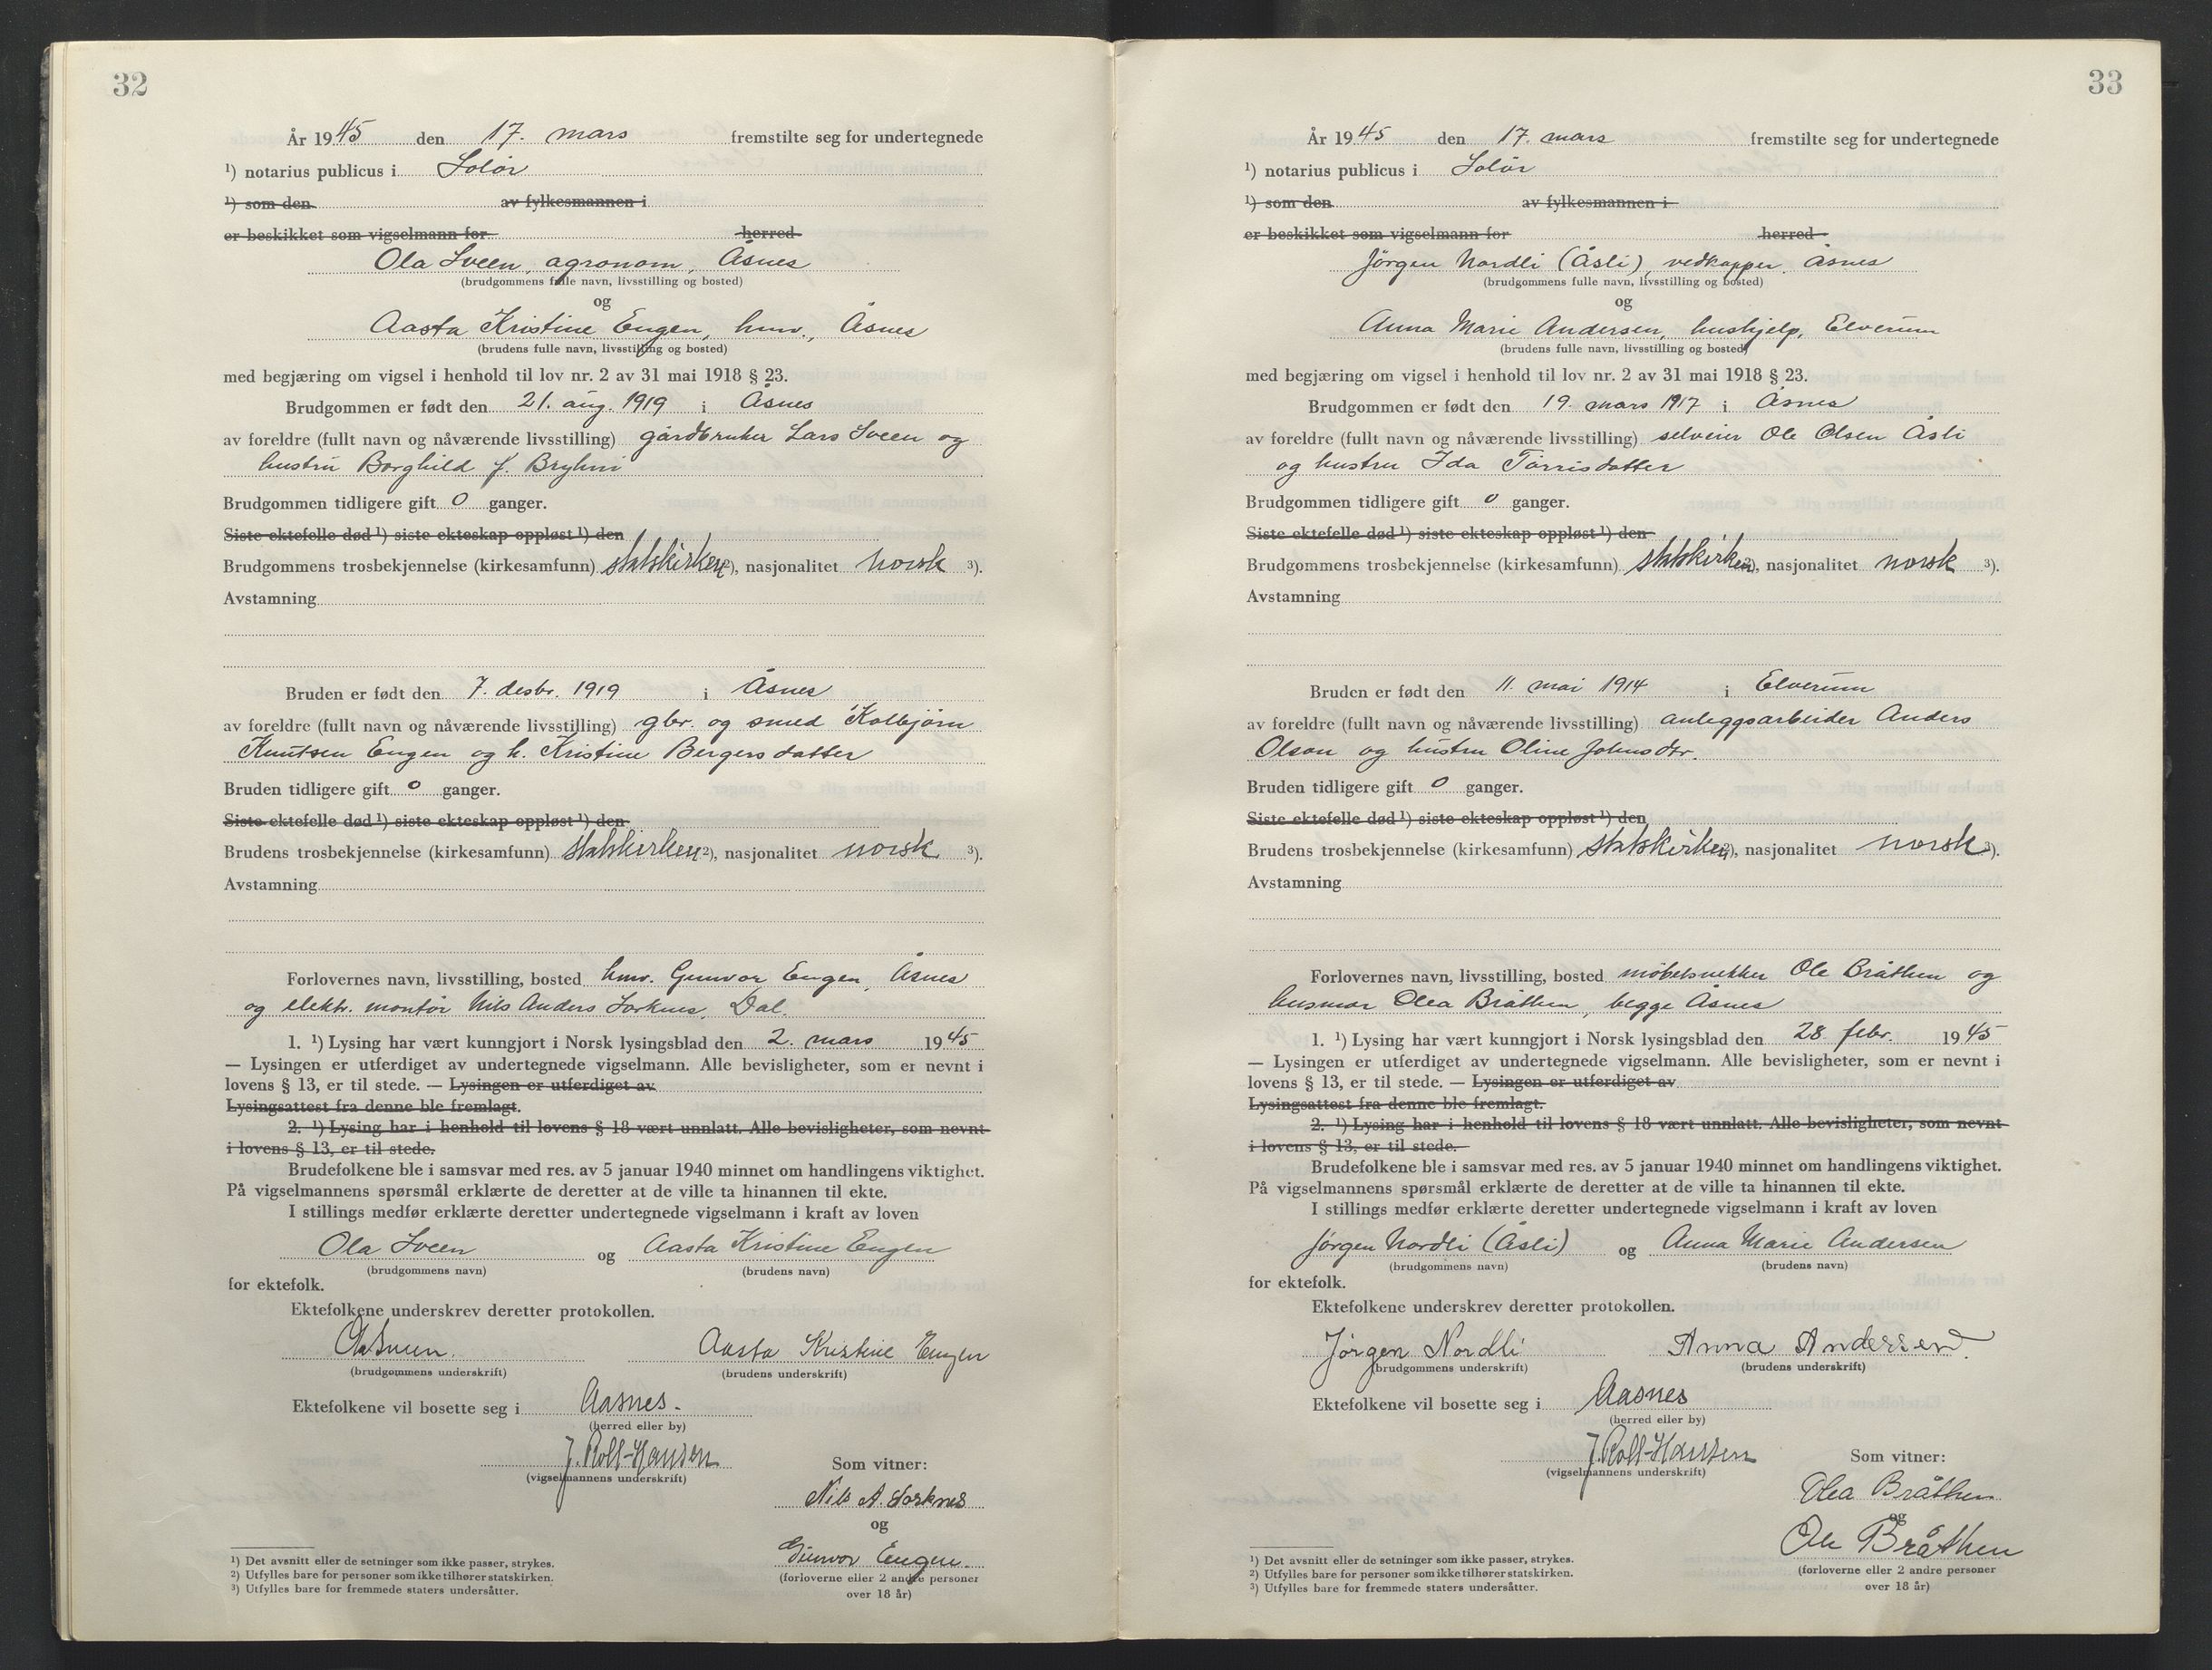 32
År 1945 den 17. mars fremstilte seg for undertegnede
¹) notarius publicus i Solør
¹) som den av fylkesmannen i
er beskikket som vigselmann for herred
Ola Sveen, agronom, Åsnes
(brudgommens fulle navn, livsstilling og bosted)
og
Aasta Kristine Engen, hmv., Åsnes
(brudens fulle navn, livsstilling og bosted)
med begjæring om vigsel i henhold til lov nr. 2 av 31 mai 1918 § 23.
Brudgommen er født den 21. aug. 1919 i Åsnes
av foreldre (fullt navn og nåværende livsstilling) gårdbruker Lars Sveen og
hustru Borghild f. Bryhni
Brudgommen tidligere gift 0 ganger.
Siste ektefelle død ¹) siste ekteskap oppløst ¹) den
Brudgommens trosbekjennelse (kirkesamfunn) statskirken ²), nasjonalitet norsk ³).
Avstamning
Bruden er født den 7. desbr. 1919 i Åsnes
av foreldre (fullt navn og nåværende livsstilling) gbr. og smed Kolbjørn
Knutsen Engen og h. Kristine Bergersdatter
Bruden tidligere gift 0 ganger.
Siste ektefelle død ¹) siste ekteskap oppløst ¹) den
Brudens trosbekjennelse (kirkesamfunn) statskirken ²), nasjonalitet norsk ³).
Avstamning
Forlovernes navn, livsstilling, bosted hmv. Gunvor Engen, Åsnes
og elektr. montør Nils Anders Sorknes, Dal.
1. ¹) Lysing har vært kunngjort i Norsk lysingsblad den 2. mars 1945
— Lysingen er utferdiget av undertegnede vigselmann. Alle bevisligheter, som er nevnt i
lovens § 13, er til stede. — Lysingen er utferdiget av
Lysingsattest fra denne ble fremlagt.
2. ¹) Lysing har i henhold til lovens § 18 vært unnlatt. Alle bevisligheter, som nevnt
i lovens § 13, er til stede.
Brudefolkene ble i samsvar med res. av 5 januar 1940 minnet om handlingens viktighet.
På vigselmannens spørsmål erklærte de deretter at de ville ta hinannen til ekte.
I stillings medfør erklærte deretter undertegnede vigselmann i kraft av loven
Ola Sveen og Aasta Kristine Engen
(brudgommens navn) (brudens navn)
for ektefolk.
Ektefolkene underskrev deretter protokollen.
Ola Sveen. Aasta Kristine Engen
(brudgommens underskrift) (brudens underskrift)
Ektefolkene vil bosette seg i Aasnes.
(herred eller by)
J. Roll-Hansen
(vigselmannens underskrift)
Som vitner:
Nils A. Sorknes
og
Gunvor Engen.
(forloverne eller 2 andre personer
over 18 år)
¹) Det avsnitt eller de setninger som ikke passer, strykes.
²) Utfylles bare for personer som ikke tilhører statskirken.
³) Utfylles bare for fremmede staters undersåtter.
33
År 1945 den 17. mars fremstilte seg for undertegnede
¹) notarius publicus i Solør
¹) som den av fylkesmannen i
er beskikket som vigselmann for herred
Jørgen Nordli (Åsli), vedkapper, Åsnes
(brudgommens fulle navn, livsstilling og bosted)
og
Anna Marie Andersen, hushjelp, Elverum
(brudens fulle navn, livsstilling og bosted)
med begjæring om vigsel i henhold til lov nr. 2 av 31 mai 1918 § 23.
Brudgommen er født den 19. mars 1917 i Åsnes
av foreldre (fullt navn og nåværende livsstilling) selveier Ole Olsen Åsli
og hustru Ida Tørrisdatter
Brudgommen tidligere gift 0 ganger.
Siste ektefelle død ¹) siste ekteskap oppløst ¹) den
Brudgommens trosbekjennelse (kirkesamfunn) statskirken ²), nasjonalitet norsk ³).
Avstamning
Bruden er født den 11. mai 1914 i Elverum
av foreldre (fullt navn og nåværende livsstilling) anleggsarbeider Anders
Olson og hustru Oline Johnsdtr.
Bruden tidligere gift 0 ganger.
Siste ektefelle død ¹) siste ekteskap oppløst ¹) den
Brudens trosbekjennelse (kirkesamfunn) statskirken ²), nasjonalitet norsk ³).
Avstamning
Forlovernes navn, livsstilling, bosted møbelsnekker Ole Bråthen og
husmor Olea Bråthen, begge Åsnes
1. ¹) Lysing har vært kunngjort i Norsk lysingsblad den 28. febr. 1945
— Lysingen er utferdiget av undertegnede vigselmann. Alle bevisligheter, som er nevnt i
lovens § 13, er til stede. — Lysingen er utferdiget av
Lysingsattest fra denne ble fremlagt.
2. ¹) Lysing har i henhold til lovens § 18 vært unnlatt. Alle bevisligheter, som nevnt
i lovens § 13, er til stede.
Brudefolkene ble i samsvar med res. av 5 januar 1940 minnet om handlingens viktighet.
På vigselmannens spørsmål erklærte de deretter at de ville ta hinannen til ekte.
I stillings medfør erklærte deretter undertegnede vigselmann i kraft av loven
Jørgen Nordli (Åsli) og Anna Marie Andersen
(brudgommens navn) (brudens navn)
for ektefolk.
Ektefolkene underskrev deretter protokollen.
Jørgen Nordli Anna Andersen.
(brudgommens underskrift) (brudens underskrift)
Ektefolkene vil bosette seg i Aasnes
(herred eller by)
J. Roll-Hansen
(vigselmannens underskrift)
Som vitner:
Olea Bråthen
og
Ole Bråthen
(forloverne eller 2 andre personer
over 18 år)
¹) Det avsnitt eller de setninger som ikke passer, strykes.
²) Utfylles bare for personer som ikke tilhører statskirken.
³) Utfylles bare for fremmede staters undersåtter.